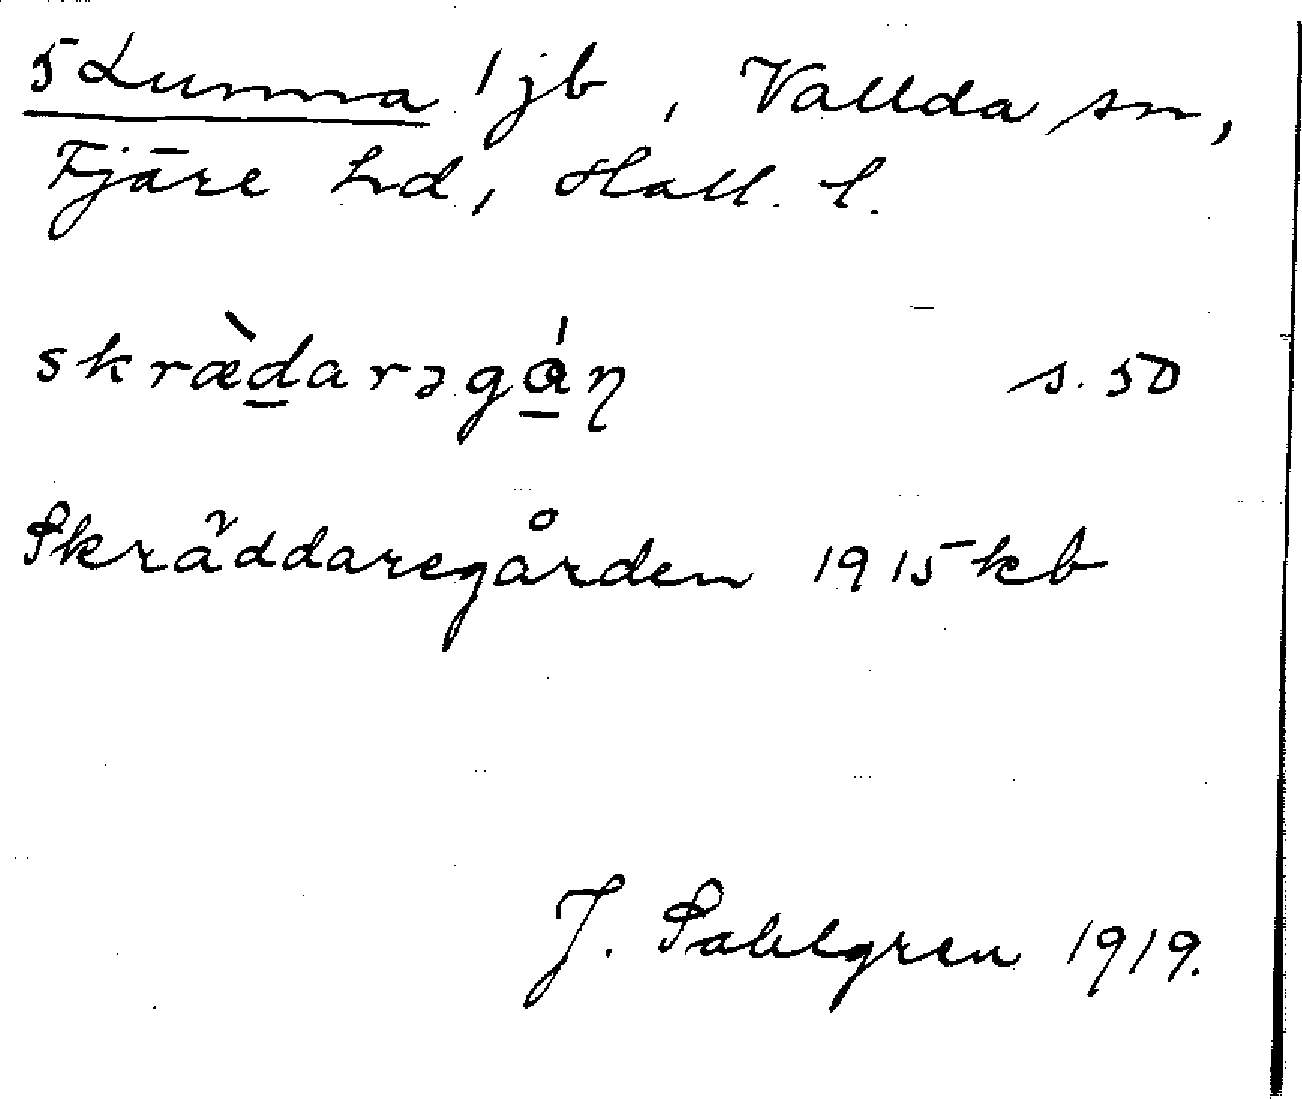 5 Lunna 1 jb, Vallda sn,
Fjäre hd, Hall. l.
skræ̀darəgɑ́ɳ s. 50
Skräddaregården 1915 kb
J. Sahlgren 1919.